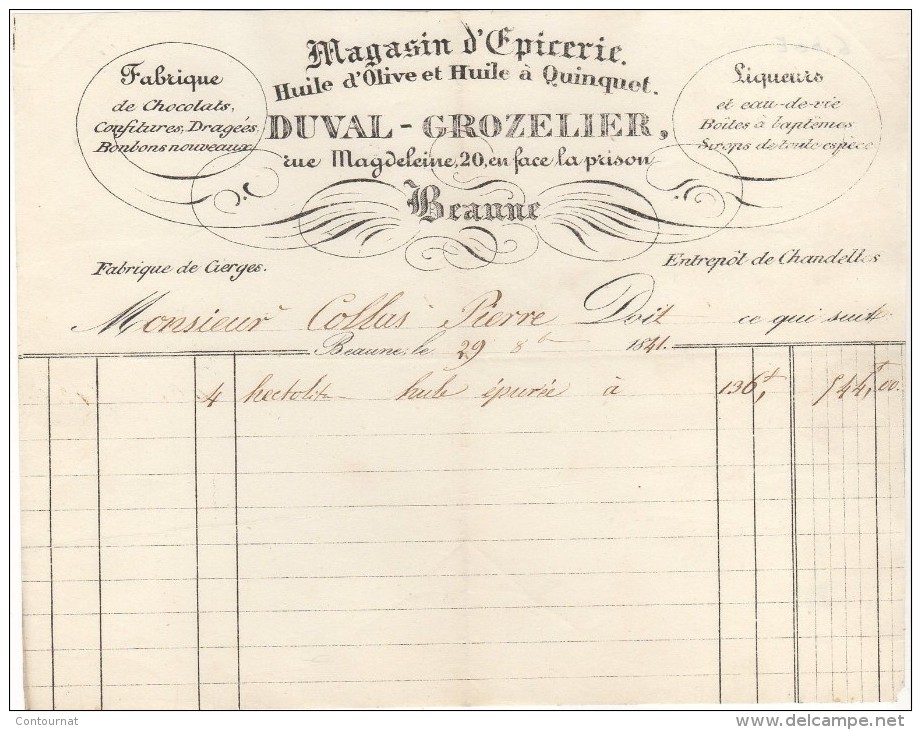 Magasin d'Epicerie.
Huile d'Olive et Huile à Quinquet.
DUVAL - GROZELIER,
rue Magdeleine, 20, en face la prison
Beaune
Fabrique
de Chocolats,
Confitures, Dragées,
Bonbons nouveaux.
Liqueurs
et eau-de-vie
Boîtes à baptêmes
Sirops de toute espèce
Fabrique de Cierges.
Entrepôt de Chandelles
Monsieur Collas Pierre Doit ce qui suit
Beaune, le 29 8b 1841.
4 hectolit huile épurée à 136f, 544f, 00.
Contournat
www.delcampe.net